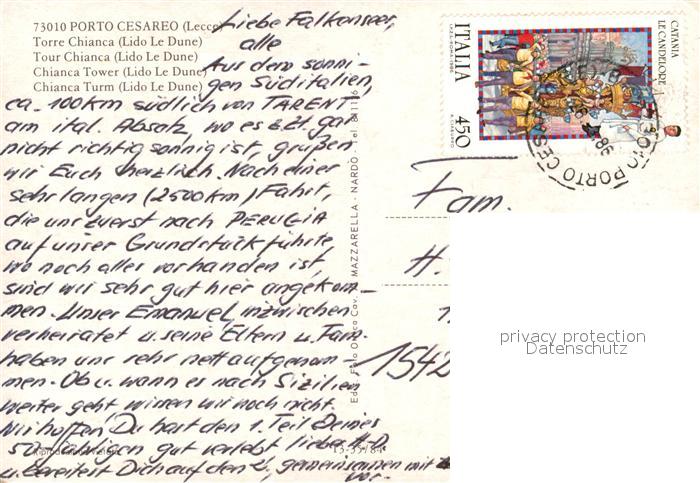 73010 PORTO CESAREO (Lecce)
Torre Chianca (Lido Le Dune)
Tour Chianca (Lido Le Dune)
Chianca Tower (Lido Le Dune)
Chianca Turm (Lido Le Dune)
Liebe Falkenseer,
alle
Aus dem sonni-
gen Süditalien,
ca. 100 km südlich von TARENT
am ital. Absatz, wo es z. Zt. gar
nicht richtig sonnig ist, grüßen
wir Euch herzlich. Nach einer
sehr langen (2500 km) Fahrt,
die uns zuerst nach PERUGIA
auf unser Grundstück führte,
wo noch alles vorhanden ist,
sind wir sehr gut hier angekom-
men. Unser Emanuel, inzwischen
verheiratet u. seine Eltern u. Fam.
haben uns sehr nett aufgenom-
men. Ob u. wann es nach Sizilien
weiter geht wissen wir noch nicht.
Wir hoffen, Du hast den 1. Teil Deines
50-jährigen gut verlebt lieber H-D
u. bereitest Dich auf den 2., gemeinsamen mit
vor.
MAZZARELLA - NARDÒ - Tel.
15-35/84
ITALIA
450
I.P.Z.S. ROMA 1986
CATANIA
LE CANDELORE
PORTO CES
86
Fam.
H.
1542
privacy protection
Datenschutz